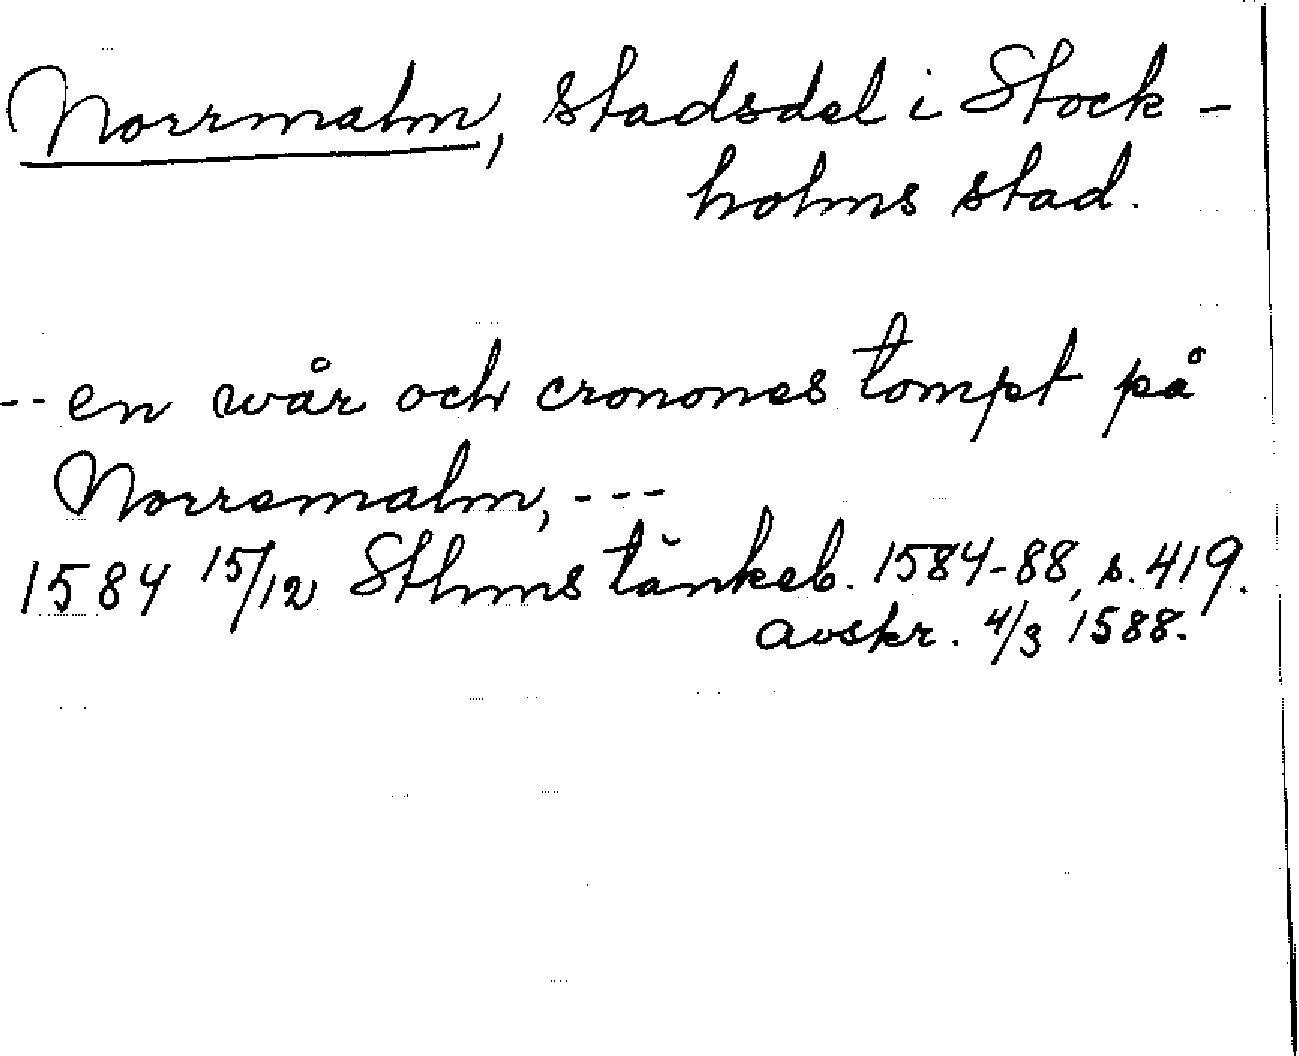 Norrmalm, stadsdel i Stock-
holms stad.
-- en wår och cronones tompt på
Norremalm, ---
1584 15/12 Sthms tänkeb. 1584-88, s. 419.
avskr. 4/3 1588.